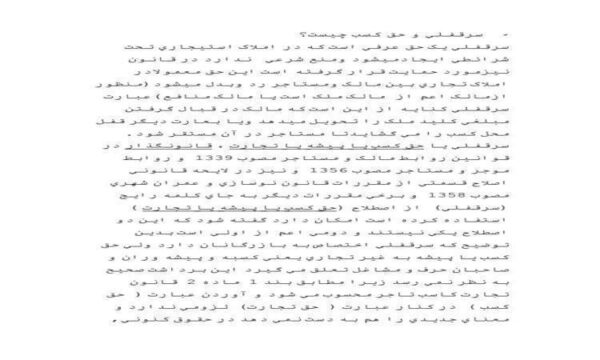 - سرقفلی و حق کسب چیست؟
سرقفلی یک حق عرفی است که در املاک استیجاری تحت
شرائطی ایجادمیشود ومنع شرعی ندارد در قانون
نیزمورد حمایت قرار گرفته است این حق معمولادر
املاک تجاری بین مالک ومستاجر رد وبدل میشود (منظور
ازمالک اعم از مالک ملک است یا مالک منافع) عبارت
سرقفلی کنایه از این است که مالک در قبال گرفتن
مبلغی کلید ملک را تحویل میدهد ویا بعبارت دیگر قفل
محل کسب را می گشاید تا مستاجر در آن مستقر شود .
سرقفلی با حق کسب یا پیشه یا تجارت . قانونگذار در
قوانین روابط مالک و مستاجر مصوب 1339 و روابط
موجر و مستاجر مصوب 1356 و نیز در لایحه قانونی
اصلاح قسمتی از مقررات قانون نوسازی و عمران شهری
مصوب 1358 و برخی مقررات دیگر به جای کلمه رایج
(سرقفلی) از اصطلاح (حق کسب یا پیشه یا تجارت )
استفاده کرده است امکان دارد گفته شود که این دو
اصطلاح یکی نیستند و دومی اعم از اولی است بدین
توضیح که سرقفلی اختصاص به بازرگانان دارد ولی حق
کسب یا پیشه به غیر تجاری یعنی کسبه و پیشه وران و
صاحبان حرف و مشاغل تعلق می گیرد این برداشت صحیح
به نظر نمی رسد زیرا مطابق بند 1 ماده 2 قانون
تجارت کاسب تاجر محسوب می شود و آوردن عبارت ( حق
کسب ) در کنار عبارت ( حق تجارت) لزومی ندارد و
معنای جدیدی را هم به دست نمی دهد در حقوق کنونی .